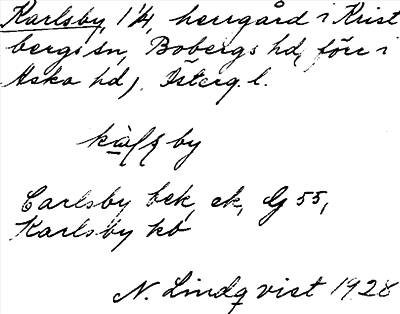 Karlsby, 1 1/4, herrgård i Krist
bergs sn, Bobergs hd, förr i
Aska hd), Österg. l.
by
Carlsby bek, ek, G 55,
Karlsby kb
N. Lindqvist 1928